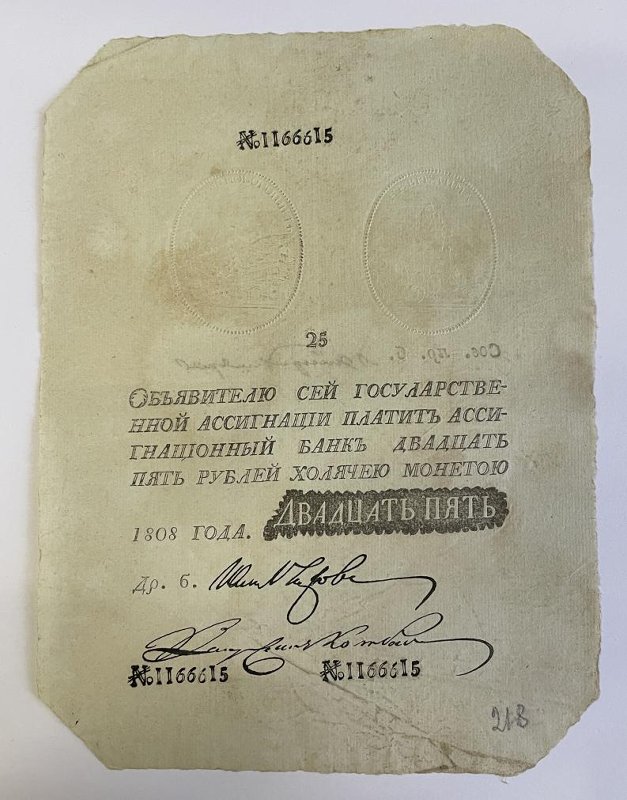 №1166615
25
ОБЪЯВИТЕЛЮ СЕЙ ГОСУЛАРСТВЕ-
ННОЙ АССИГНАЦІИ ПЛАТИТЪ АССИ-
ГНАЦІОННЫЙ БАНКЪ ДВАДЦАТЬ
ПЯТЬ РУБЛЕЙ ХОЛЯЧЕЮ МОНЕТОЮ
1808 ГОДА. ДВАДЦАТЬ ПЯТЬ
Др. б.
№1166615 №1166615
218